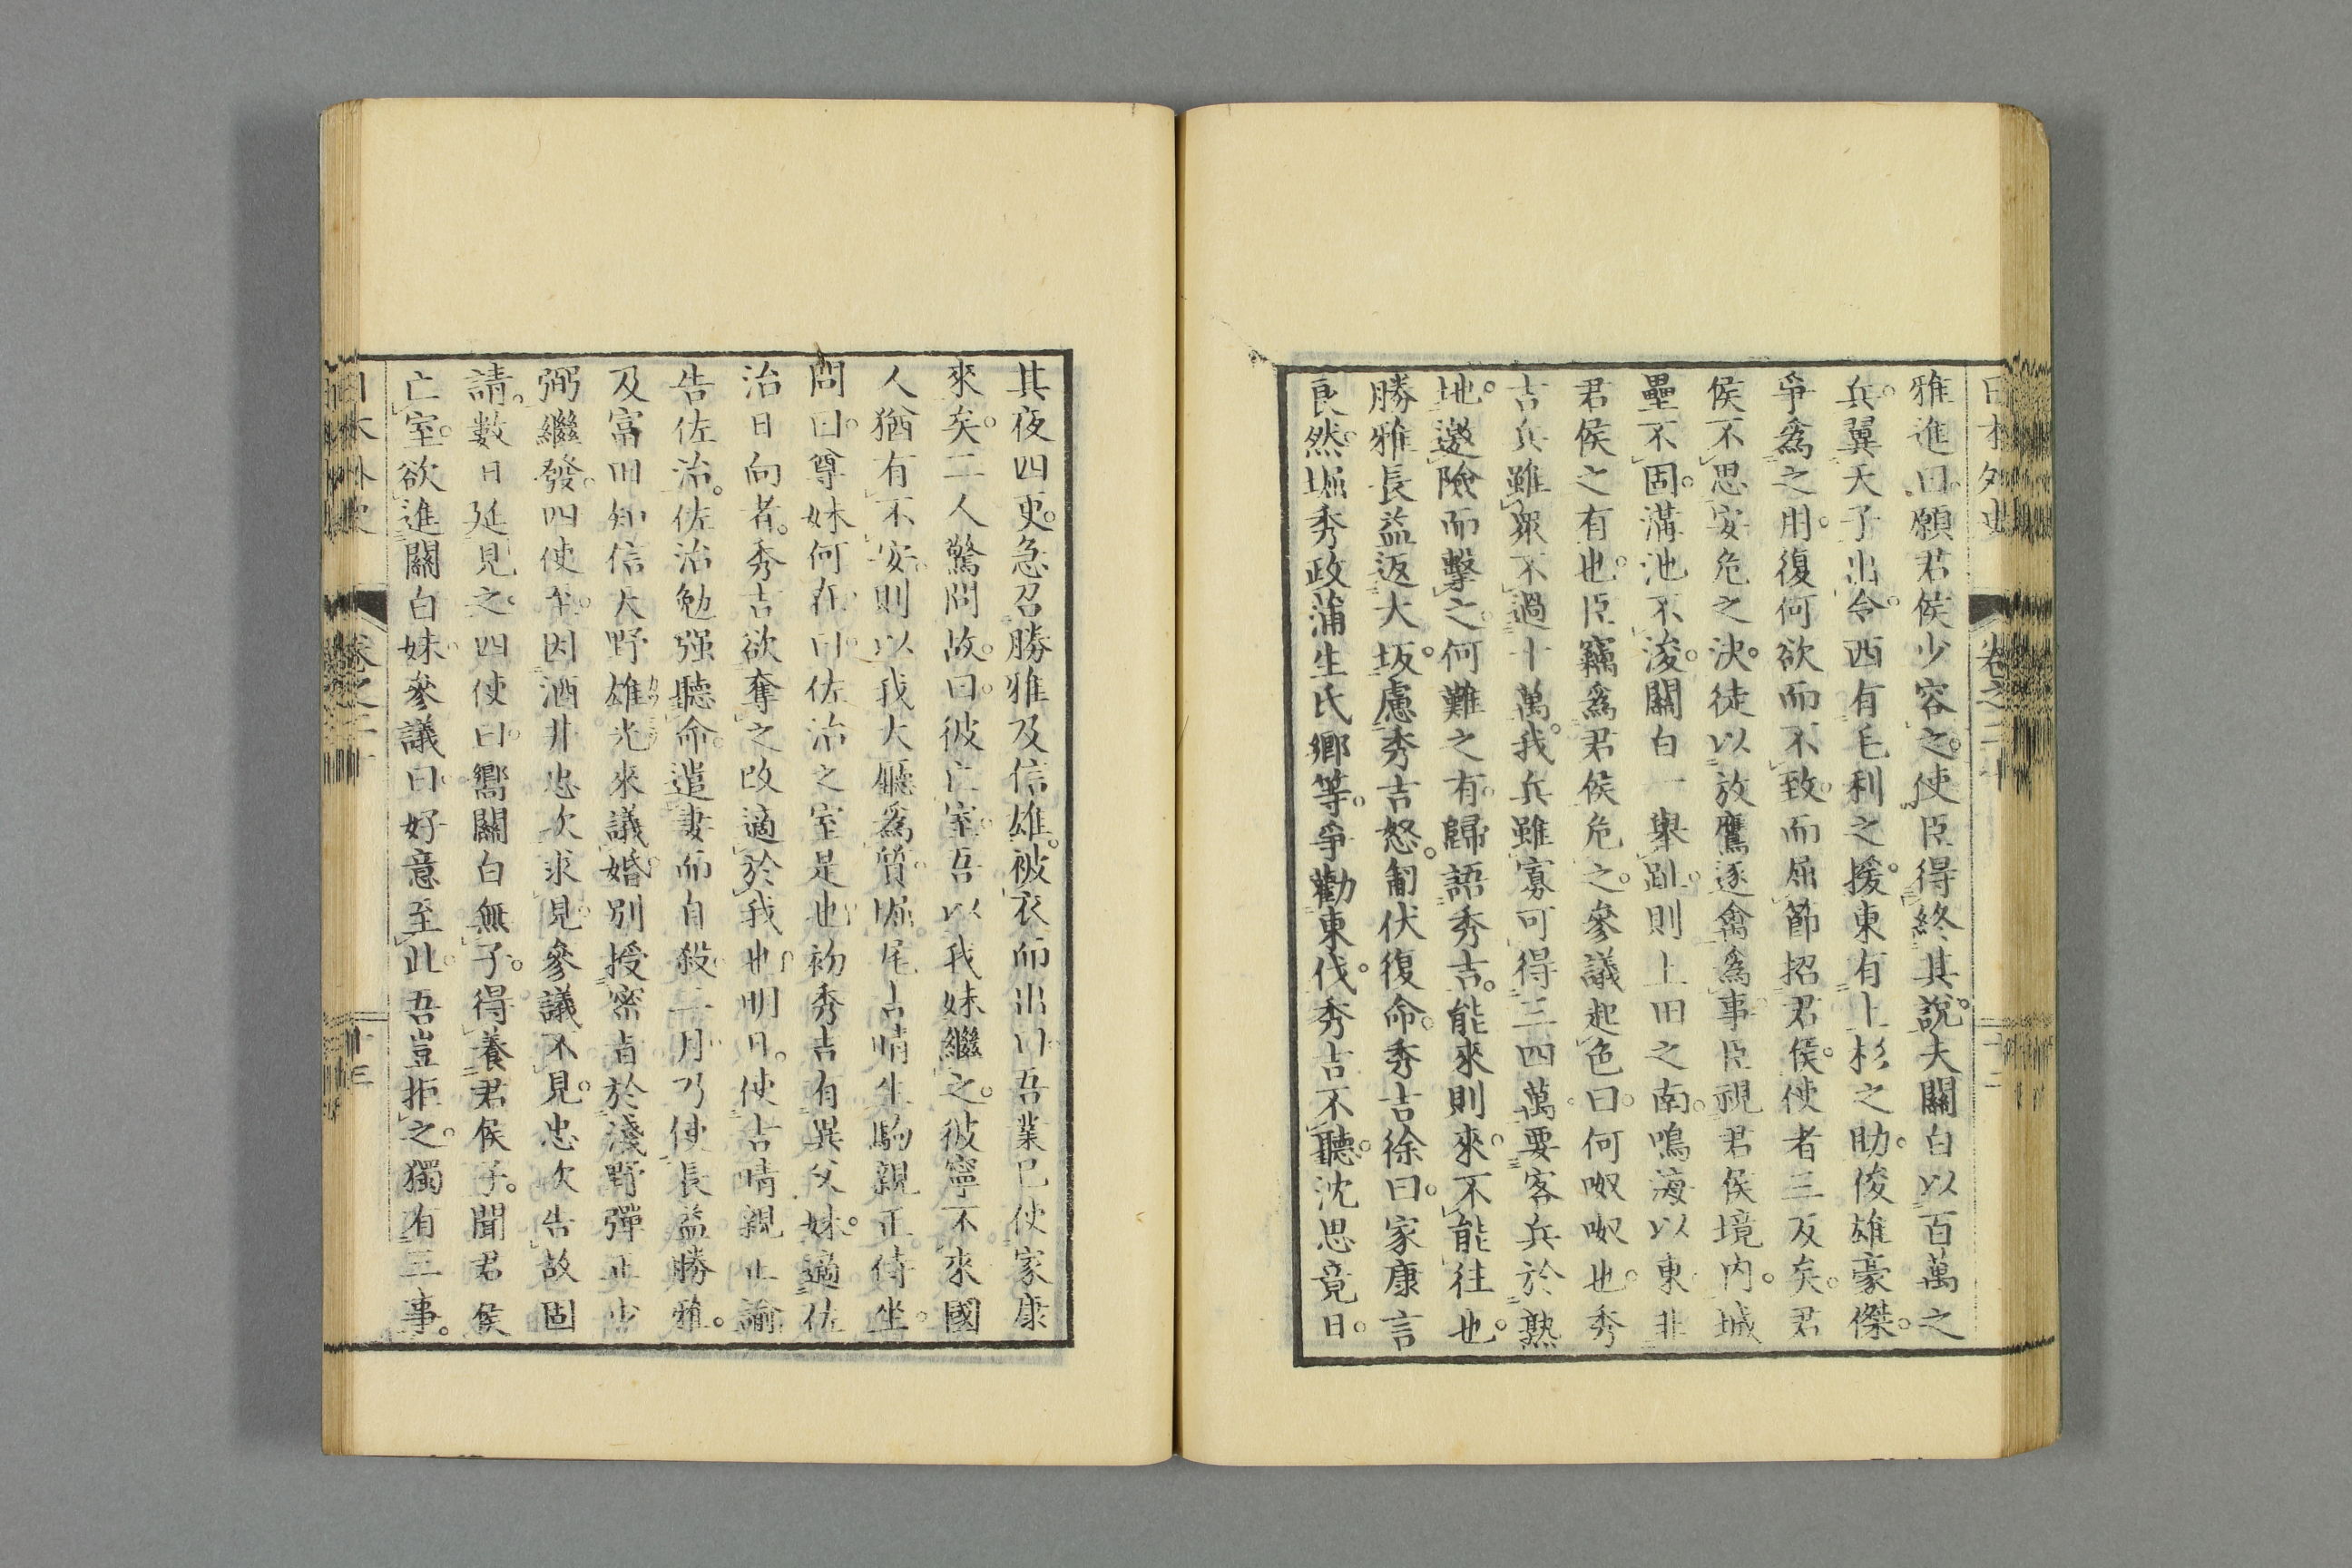 日本外史 卷之二十 十二
雅進曰。願君侯少容之。使臣得終其說。夫關白以百萬之
兵。翼天子出令。西有毛利之援。東有上杉之助。俊雄豪傑。
爭爲之用。復何欲而不致。而屈節招君侯。使者三反矣。君
侯不思安危之決。徒以放鷹逐禽爲事。臣視君侯境内。城
壘不固。溝池不浚。關白一擧趾。則上田之南。鳴海以東。非
君侯之有也。臣竊爲君侯危之。參議起色曰。何呶呶也。秀
吉兵雖衆。不過十萬。我兵雖寡。可得三四萬。要客兵於熟
地。邀險而擊之。何難之有。歸語秀吉。能來則來。不能往也。
勝雅長益返大坂。慮秀吉怒。匍伏復命。秀吉徐曰。家康言
良然。堀秀政蒲生氏鄉等。爭勸東伐。秀吉不聽。沈思竟日。
其夜四更。急召勝雅及信雄。被衣而出曰。吾業已使家康
來矣。二人驚問故。曰。彼亡室。吾以我妹繼之。彼寧不來。國
人猶有不安。則以我大廳爲質。堀尾吉晴生駒親正侍坐。
問曰。尊妹何在。曰佐治之室是也。初秀吉有異父妹。適佐
治日向者。秀吉欲奪之改適於我也。明日。使吉晴親正諭
告佐治。佐治勉强聽命。遣妻而自殺。二月乃使長益勝雅。
及富田知信大野雄光來議婚。別授密旨於淺野彈正少
弼繼發。四使至。因酒井忠次求見。參議不見。忠次告故固
請。數日延見之。四使曰。嚮關白無子。得養君侯子。聞君侯
亡室。欲進關白妹。參議曰。好意至此。吾豈拒之。獨有三事。
日本外史 卷之二十 十三